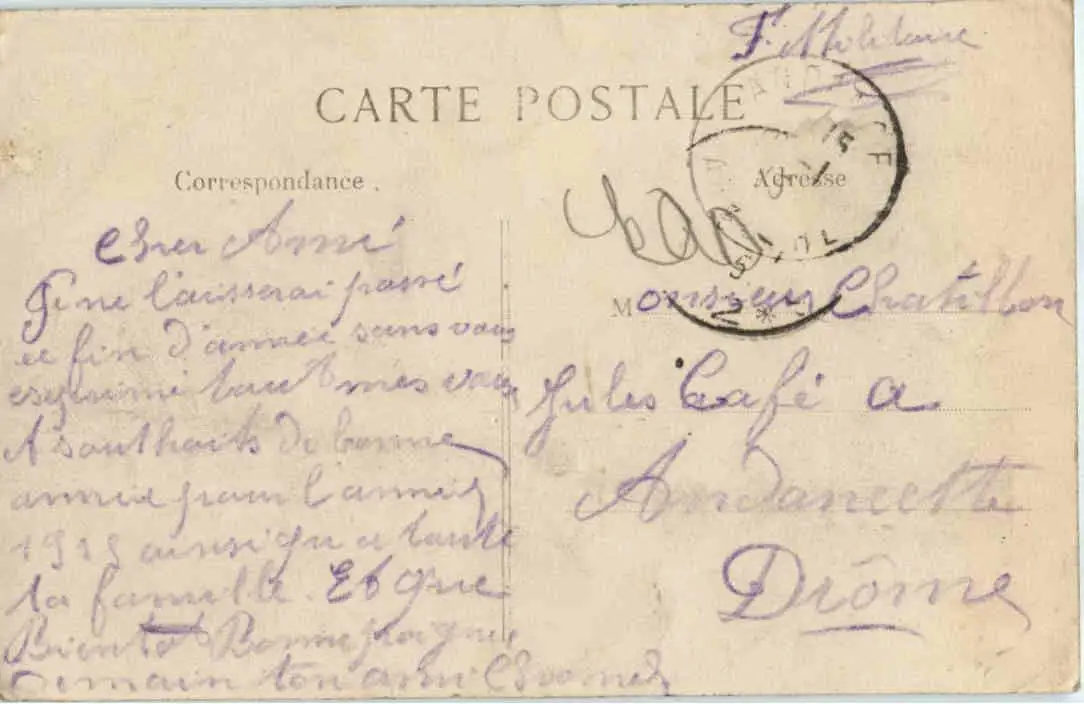 F. Militaire
CARTE POSTALE
Correspondance.
Adresse
Cher Amé
Je ne laisserai passé
ce fin d'année sans vous
exprimé tout mes vœux
et southaits de bonne
année pour l'année
1915 ainsi qu a toute
ta famille. Et que
Bientot Bonne poignée
de main ton ami
Monsieur Chatillon
Jules Café a
Andancette
Drôme